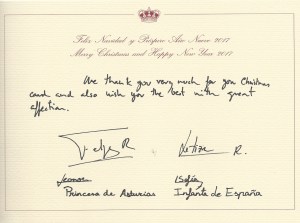 Feliz Navidad y Próspero Año Nuevo 2017
Merry Christmas and Happy New Year 2017
We thank you very much for you Christmas
card and also wish you the best with great
affection.
Felipe R Letizia R.
Leonor Sofía
Princesa de Asturias Infanta de España